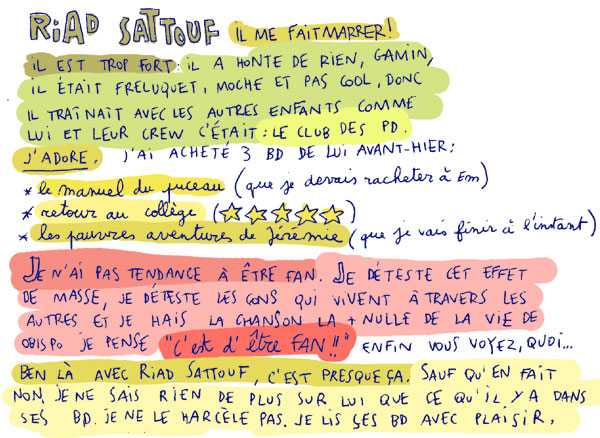 RIAD SATTOUF IL ME FAIT MARRER!
IL EST TROP FORT: IL A HONTE DE RIEN, GAMIN,
IL ÉTAIT FRELUQUET, MOCHE ET PAS COOL, DONC
IL TRAÎNAIT AVEC LES AUTRES ENFANTS COMME
LUI ET LEUR CREW C'ÉTAIT: LE CLUB DES PD.
J'ADORE. J'AI ACHETÉ 3 BD DE LUI AVANT-HIER:
* le manuel du puceau (que je devrais racheter à Em)
* retour au collège (☆☆☆☆☆)
* les pauvres aventures de Jérémie (que je vais finir à l'instant)
JE N'AI PAS TENDANCE À ÊTRE FAN. JE DÉTESTE CET EFFET
DE MASSE, JE DÉTESTE LES CONS QUI VIVENT À TRAVERS LES
AUTRES ET JE HAIS LA CHANSON LA + NULLE DE LA VIE DE
OBISPO JE PENSE "C'est d'être FAN!!" ENFIN VOUS VOYEZ, QUOI...
BEN LÀ AVEC RIAD SATTOUF, C'EST PRESQUE ÇA. SAUF QU'EN FAIT
NON, JE NE SAIS RIEN DE PLUS SUR LUI QUE CE QU'IL Y A DANS
SES BD. JE NE LE HARCÈLE PAS. JE LIS SES BD AVEC PLAISIR,